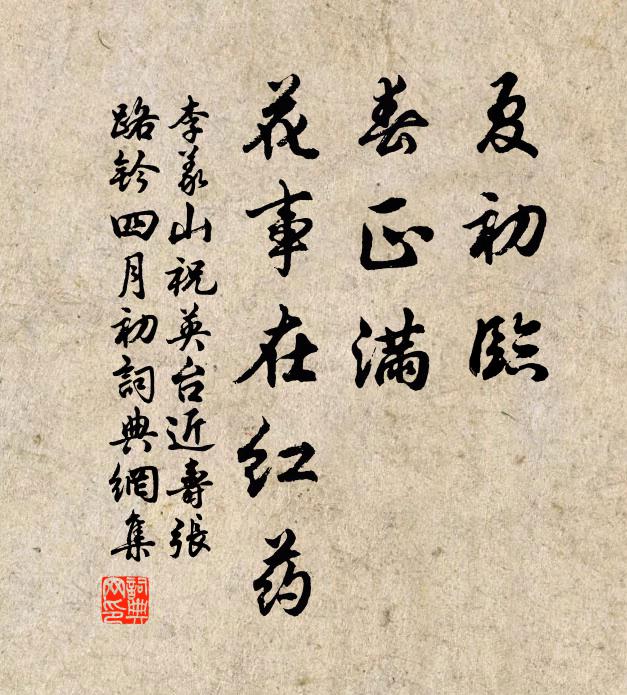 夏初臨
春正滿
花事在红药
李義山祝英台近壽張
路鈐四月初詞典網集
詞典网印